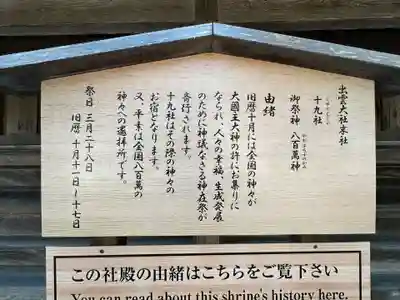 出雲大社末社
十九社
じゅうくしゃ
御祭神 八百萬神
やおよろずのかみ
由緒
旧暦十月には全国の神々が
大國主大神の許にお集りに
なられ、人々の幸福、生成発展
のために神議なさる神在祭が
斎行されます。
十九社はその際の神々の
お宿となります。
又、平素は全国八百萬の
神々への遙拝所です。
祭日 三月二十八日
旧暦 十月十一日〜十七日
この社殿の由緒はこちらをご覧下さい
You can read about this shrine's history here.